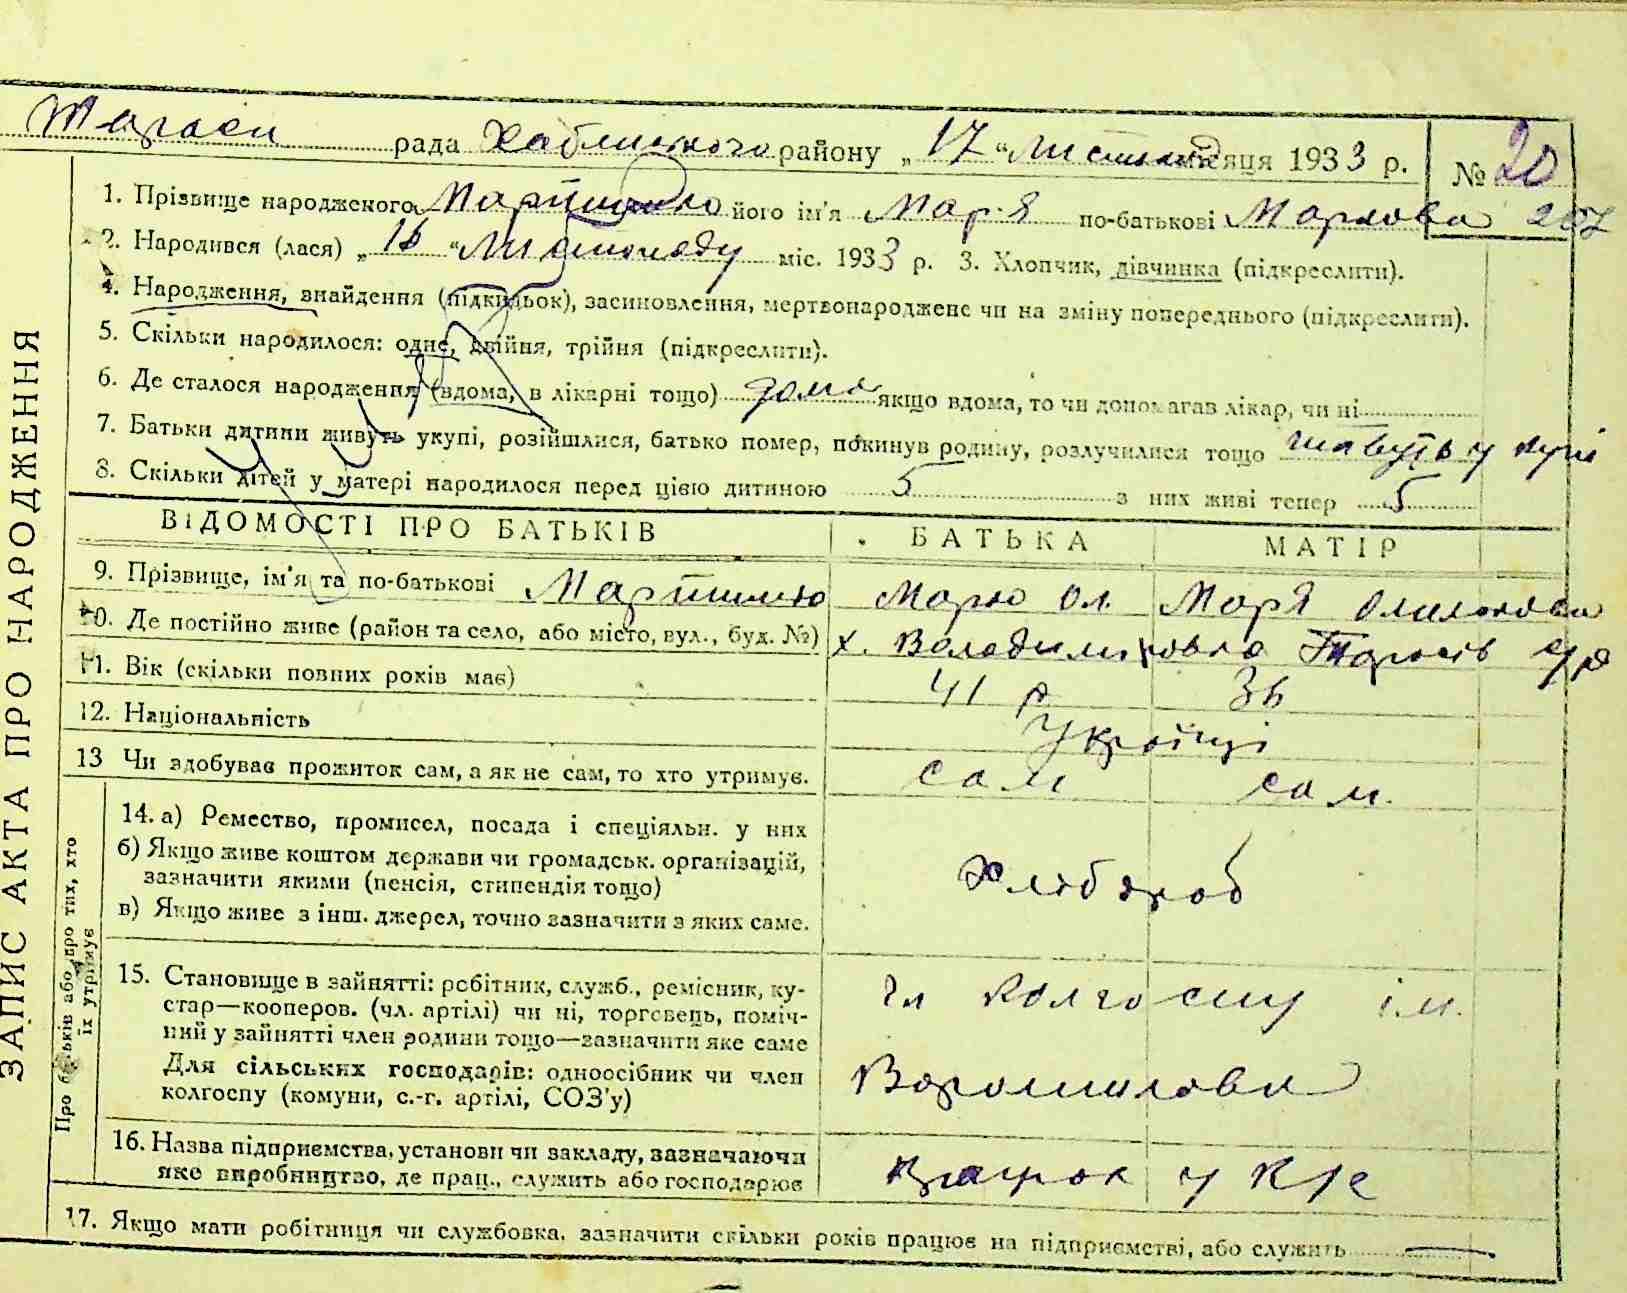 рада району „ 17 “ Листопад місяця 1933 р. № 20
1. Прізвище народженого його ім'я Мар'я по-батькові Маркова 207
2. Народився (лася) „ 16 “ Листопаду міс. 1933 р. 3. Хлопчик, дівчинка (підкреслити).
4. Народження, знайдення (підкидьок), засиновлення, мертвонароджене чи на зміну попереднього (підкреслити).
5. Скільки народилося: одне, двійня, трійня (підкреслити).
6. Де сталося народження (вдома, в лікарні тощо) дома якщо вдома, то чи допомагав лікар, чи ні
7. Батьки дитини живуть укупі, розійшлися, батько помер, покинув родину, розлучилися тощо живуть у купі
8. Скільки дітей у матері народилося перед цією дитиною 5 з них живі тепер 5
ВІДОМОСТІ ПРО БАТЬКІВ БАТЬКА МАТІР
9. Прізвище, ім'я та по-батькові Марко Ол. Мар'я
10. Де постійно живе (район та село, або місто, вул., буд. №) х. Володимировка с/р
11. Вік (скільки повних років має) 41 р 36
12. Національність Українці
13 Чи здобуває прожиток сам, а як не сам, то хто утримує. сам сам.
14. а) Ремество, промисел, посада і спеціяльн. у них
б) Якщо живе коштом держави чи громадськ. організацій,
зазначити якими (пенсія, стипендія тощо) Хлібороб
в) Якщо живе з інш. джерел, точно зазначити з яких саме.
15. Становище в зайнятті: робітник, служб., ремісник, ку-
стар—кооперов. (чл. артілі) чи ні, торговець, поміч- чл колгоспу ім.
ний у зайнятті член родини тощо—зазначити яке саме
Для сільських господарів: одноосібник чи член Ворошилова
колгоспу (комуни, с.-г. артілі, СОЗ'у)
16. Назва підприємства, установи чи закладу, зазначаючи
яке виробництво, де прац., служить або господарює працює у к/г
17. Якщо мати робітниця чи службовка, зазначити скільки років працює на підприємстві, або служить —
ЗАПИС АКТА ПРО НАРОДЖЕННЯ
Про батьків або про тих, хто
їх утримує